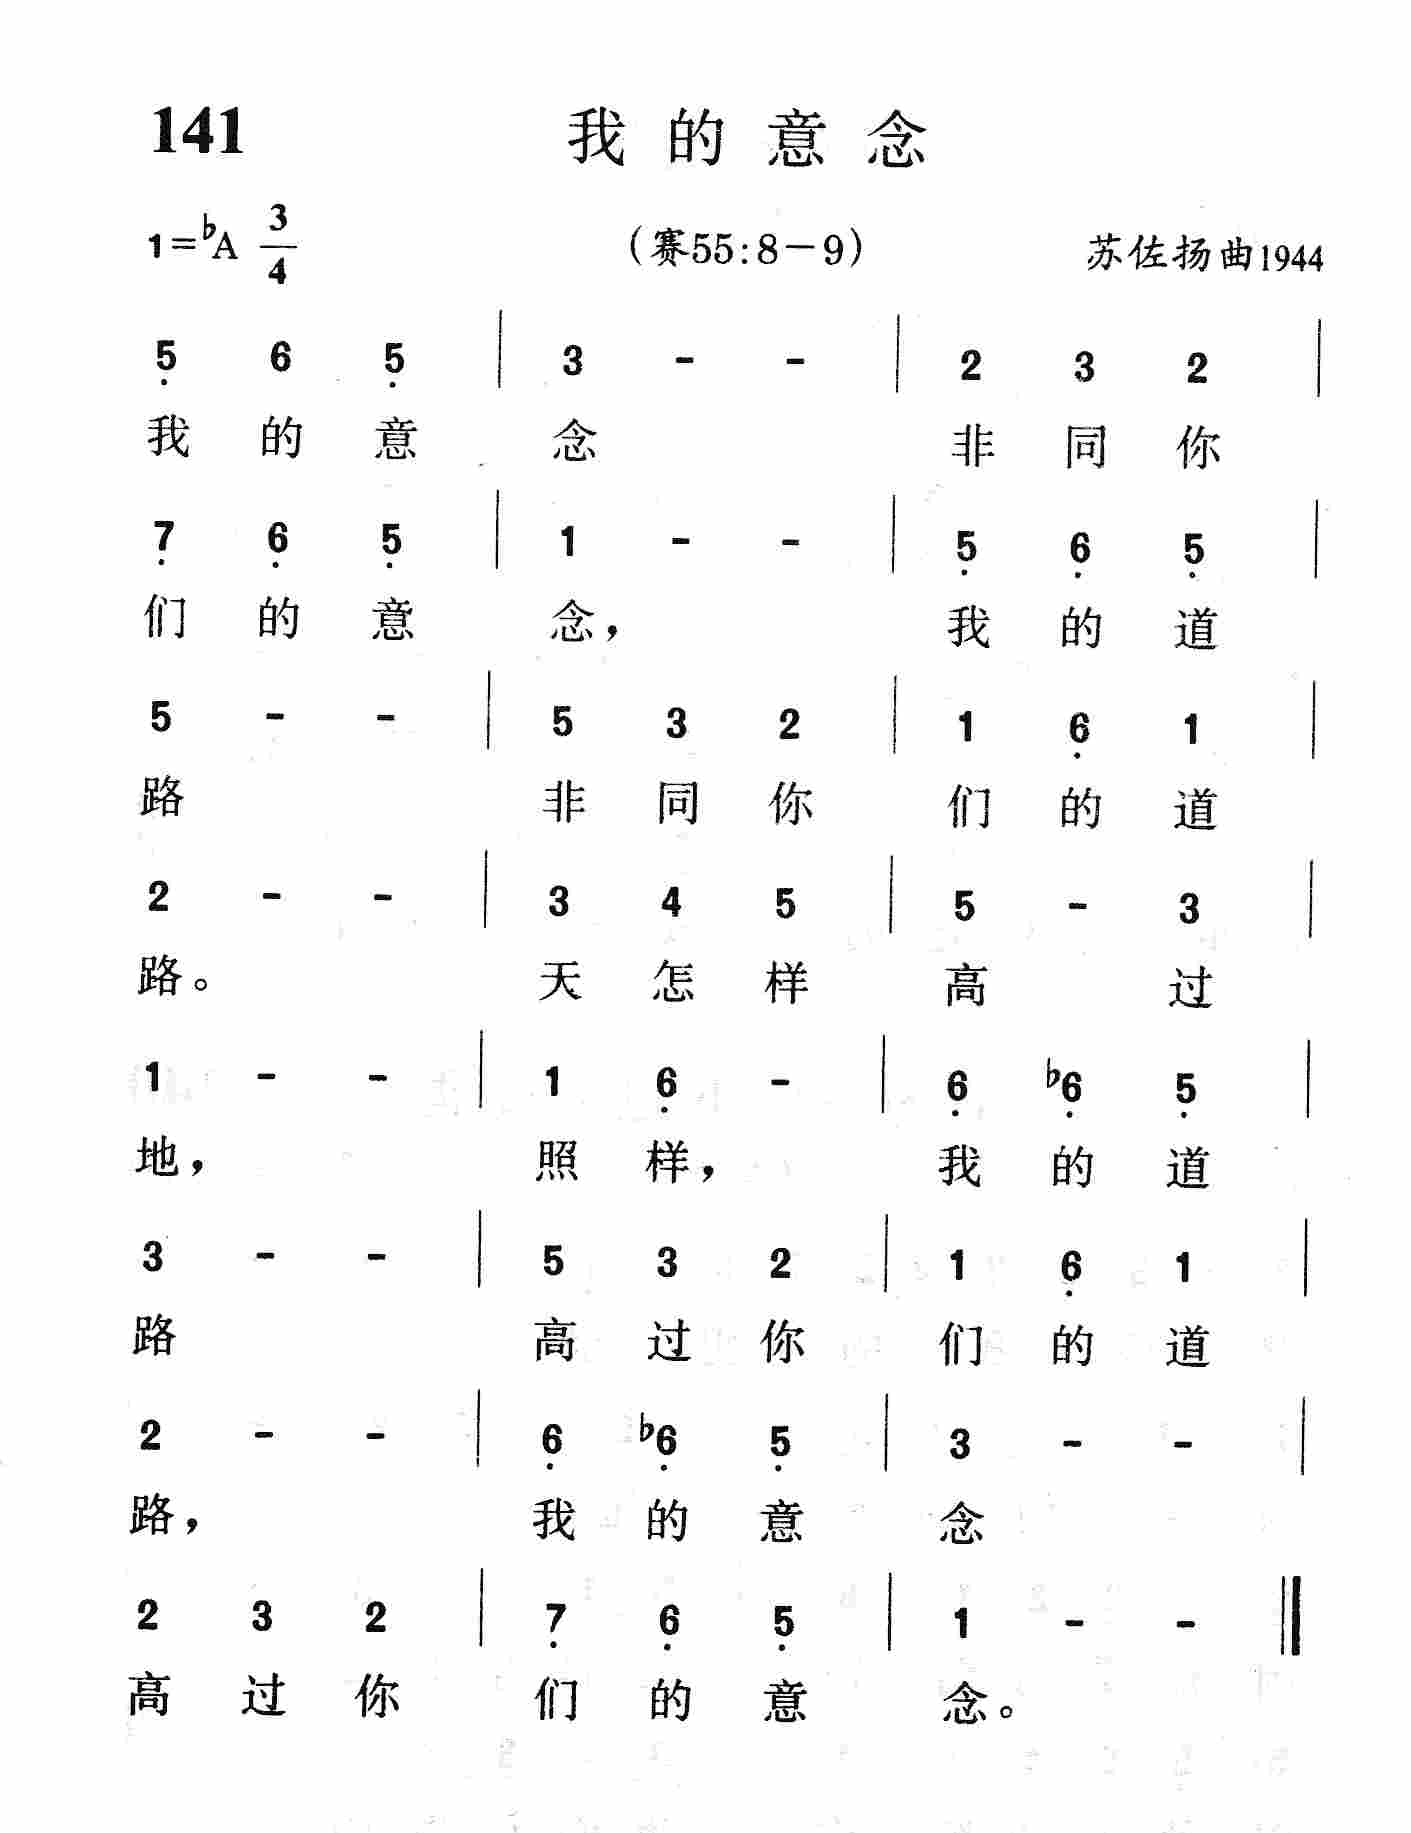 141 我的意念
1=♭A 3/4 (赛55:8-9) 苏佐扬曲1944
5̣ 6 5̣ | 3 - - | 2 3 2 |
我 的 意 念 非 同 你
7̣ 6̣ 5̣ | 1 - - | 5̣ 6̣ 5̣ |
们 的 意 念， 我 的 道
5 - - | 5 3 2 | 1 6̣ 1 |
路 非 同 你 们 的 道
2 - - | 3 4 5 | 5 - 3 |
路。 天 怎 样 高 过
1 - - | 1 6̣ - | 6̣ ♭6̣ 5̣ |
地， 照 样， 我 的 道
3 - - | 5 3 2 | 1 6̣ 1 |
路 高 过 你 们 的 道
2 - - | 6̣ ♭6̣ 5̣ | 3 - - |
路， 我 的 意 念
2 3 2 | 7̣ 6̣ 5̣ | 1 - - ‖
高 过 你 们 的 意 念。